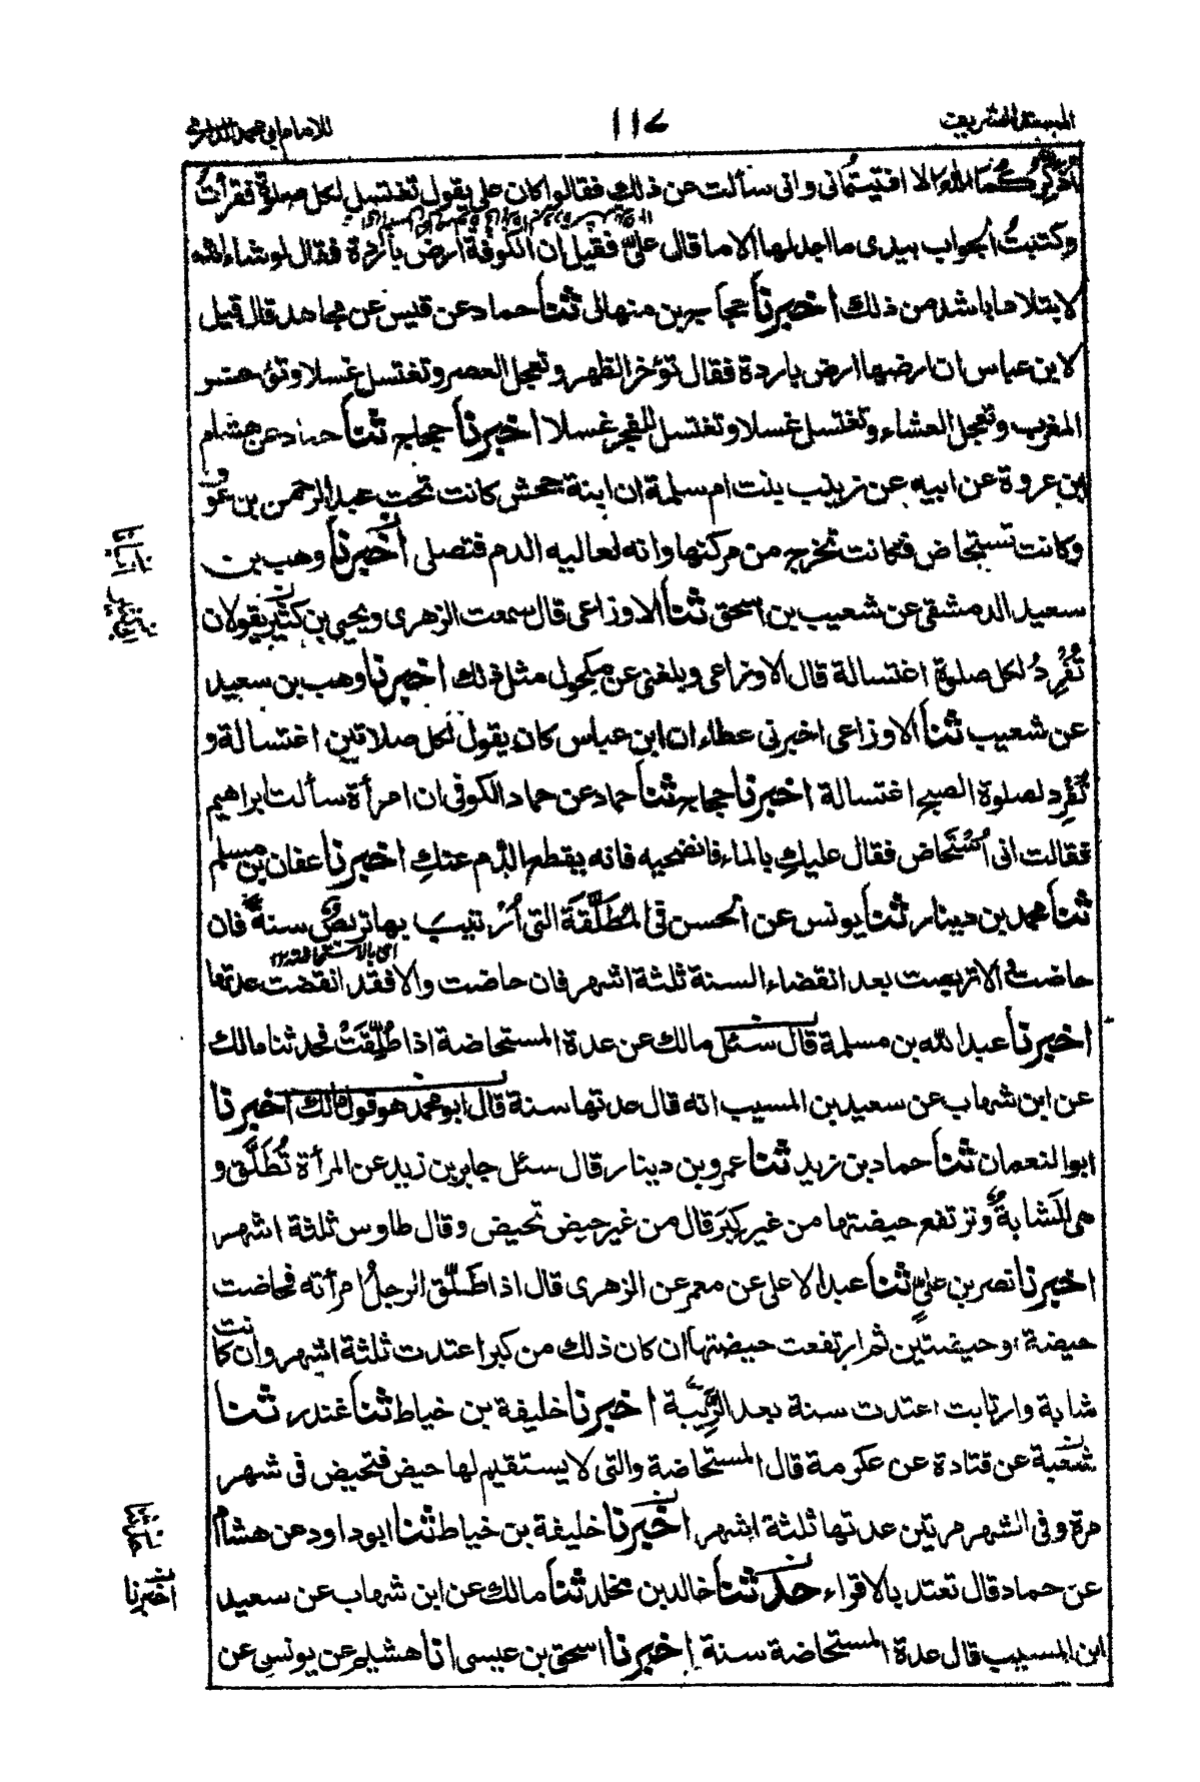 المسند الشريف
١١٧
للامام ابي محمد الدارمي
أُذَكِّرُكُمَا الله الا افتيتمانى وانى سألت عن ذلك فقالوا كان على يقول تغتسل لكل صلوة فقرأتُ
وكتبتُ الجواب بيدى ما اجد لها الا ما قال علىّ فقيل ان الكوفة ارض باردة فقال لو شاء الله
لابتلاها باشد من ذلك اخبرنا حجاج بن منهال ثنا حماد عن قيس عن مجاهد قال قيل
لابن عباس ان ارضها ارض باردة فقال تؤخر الظهر وتعجل العصر وتغتسل غسلا وتؤخر
المغرب وتعجل العشاء وتغتسل غسلا وتغتسل للفجر غسلا اخبرنا حجاج ثنا حماد عن هشام
بن عروة عن ابيه عن زينب بنت ام سلمة ان ابنة جحش كانت تحت عبد الرحمن بن عوف
وكانت تستحاض فكانت تخرج من مركنها وانه لعاليه الدم فتصلى اخبرنا وهب بن
سعيد الدمشقى عن شعيب بن اسحق ثنا الاوزاعى قال سمعت الزهرى ويحيى بن كثير يقولان
تُفْرِدُ لكل صلوة اغتسالة قال الاوزاعى وبلغنى عن مكحول مثل ذلك اخبرنا وهب بن سعيد
عن شعيب ثنا الاوزاعى اخبرنى عطاء ان ابن عباس كان يقول لكل صلاتين اغتسالة و
تُفْرِد لصلوة الصبح اغتسالة اخبرنا حجاج ثنا حماد عن حماد الكوفى ان امرأة سألت ابراهيم
فقالت انى اُسْتَحَاض فقال عليكِ بالماء فانضحيه فانه يقطع الدم عنكِ اخبرنا عفان بن مسلم
ثنا محمد بن دينار ثنا يونس عن الحسن فى المُطَلَّقَة التى اُرْتيب بها تربص سنة فان
اى بالاستحاضة ١٢
حاضت والا تربصت بعد انقضاء السنة ثلثة اشهر فان حاضت والا فقد انقضت عدتها
اخبرنا عبد الله بن مسلمة قال سئل مالك عن عدة المستحاضة اذا طُلِّقَتْ فحدثنا مالك
عن ابن شهاب عن سعيد بن المسيب انه قال عدتها سنة قال ابو محمد هو قول مالك اخبرنا
ابو النعمان ثنا حماد بن زيد ثنا عمرو بن دينار قال سئل جابر بن زيد عن المرأة تُطَلَّق و
هى الشابة وترتفع حيضتها من غير كِبَر قال من غير حيض تحيض وقال طاوس ثلثة اشهر
اخبرنا نصر بن علىّ ثنا عبد الاعلى عن معمر عن الزهرى قال اذا طَلَّق الرجلُ امرأته فحاضت
حيضة او حيضتين ثم ارتفعت حيضتها ان كان ذلك من كبر اعتدت ثلثة اشهر وان كانت
شابة وارتابت اعتدت سنة بعد الرِّيبة اخبرنا خليفة بن خياط ثنا غندر ثنا
شعبة عن قتادة عن عكرمة قال المستحاضة والتى لا يستقيم لها حيض فتحيض فى شهر
مرة وفى الشهر مرتين عدتها ثلثة اشهر اخبرنا خليفة بن خياط ثنا ابو داود عن هشام
عن حماد قال تعتد بالاقراء حدثنا خالد بن مخلد ثنا مالك عن ابن شهاب عن سعيد
اخبرنا
ابن المسيب قال عدة المستحاضة سنة اخبرنا اسحق بن عيسى انا هشيم عن يونس عن